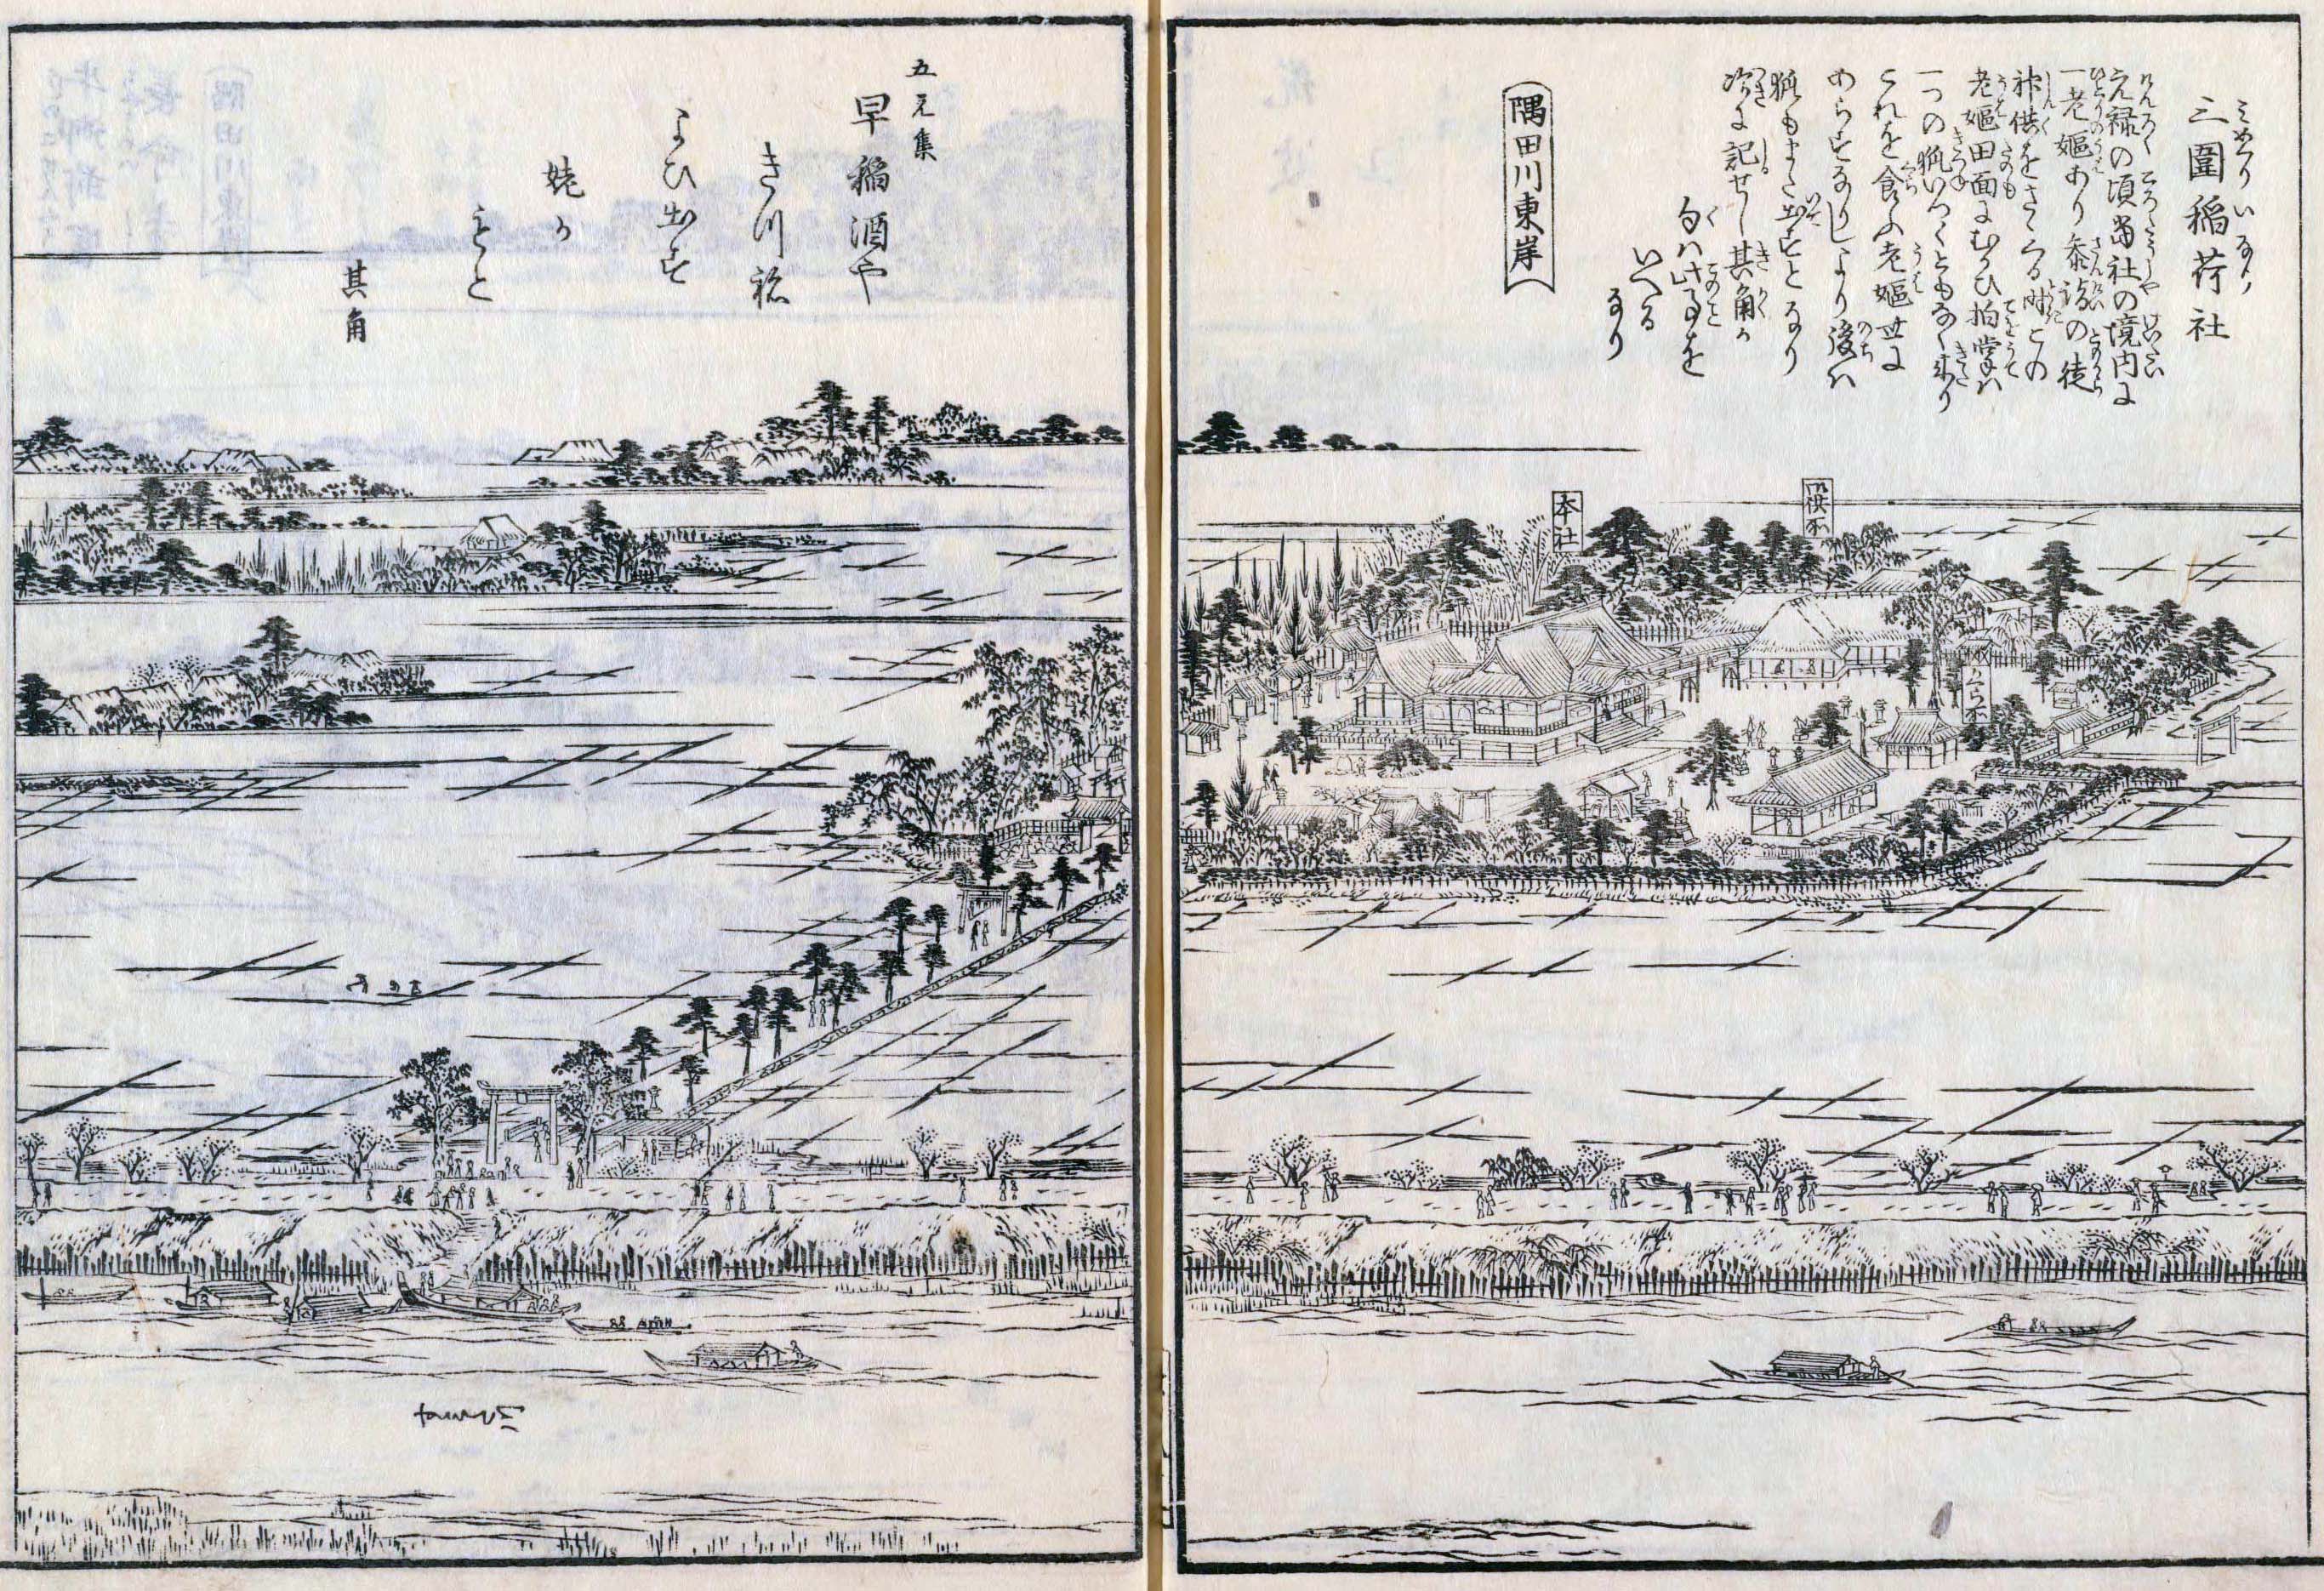 三圍稲荷社
みめぐりいなり
元禄の頃當社の境内に
一老嫗あり参詣の徒
神供をさゝくる時この
老嫗田面にむかひ拍掌ハ
一つの狐いつくともなく来り
これを食ふ老嫗世に
あらすなりしより後ハ
狐もまた出すとなり
次に記せし其角か
句ハ此事を
いへる
なり
隅田川東岸
本社
供所
五元集
早稲酒や
きつ祢
よひ出す
姥か
もと
其角